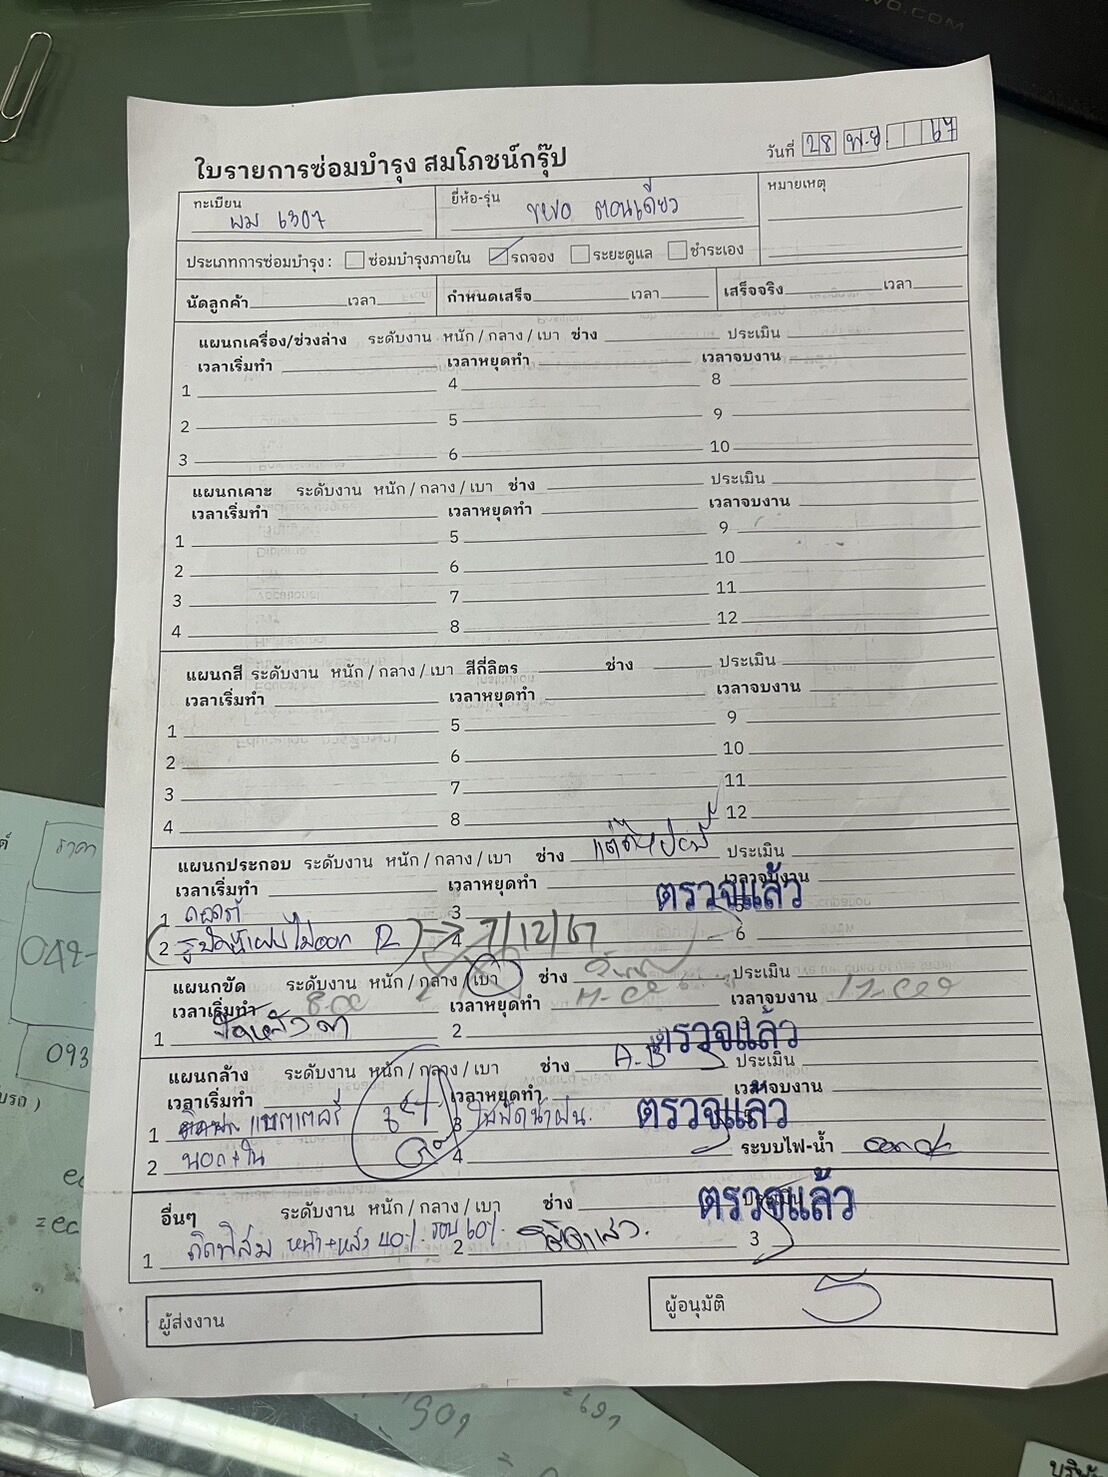 ใบรายการซ่อมบำรุง สมโภชน์กรุ๊ป
วันที่ 28 พ.ย 67
ทะเบียน ผม 6307
ยี่ห้อ-รุ่น revo ตอนเดียว
หมายเหตุ
ประเภทการซ่อมบำรุง : ซ่อมบำรุงภายใน รถจอง ระยะดูแล ชำระเอง
นัดลูกค้า เวลา กำหนดเสร็จ เวลา เสร็จจริง เวลา
แผนกเครื่อง/ช่วงล่าง ระดับงาน หนัก / กลาง / เบา ช่าง ประเมิน
เวลาเริ่มทำ เวลาหยุดทำ เวลาจบงาน
1 4 8
2 5 9
3 6 10
แผนกเคาะ ระดับงาน หนัก / กลาง / เบา ช่าง ประเมิน
เวลาเริ่มทำ เวลาหยุดทำ เวลาจบงาน
1 5 9
2 6 10
3 7 11
4 8 12
แผนกสี ระดับงาน หนัก / กลาง / เบา สีกี่ลิตร ช่าง ประเมิน
เวลาเริ่มทำ เวลาหยุดทำ เวลาจบงาน
1 5 9
2 6 10
3 7 11
4 8 12
แผนกประกอบ ระดับงาน หนัก / กลาง / เบา ช่าง ประเมิน
เวลาเริ่มทำ เวลาหยุดทำ เวลาจบงาน
ตรวจแล้ว
1 3 5
2 ไม่ออก 4 7/12/67 6
แผนกขัด ระดับงาน หนัก / กลาง / เบา ช่าง ประเมิน
เวลาเริ่มทำ เวลาหยุดทำ เวลาจบงาน
1 2 3
ตรวจแล้ว
แผนกล้าง ระดับงาน หนัก / กลาง / เบา ช่าง A-B ประเมิน
เวลาเริ่มทำ เวลาหยุดทำ เวลาจบงาน
1 แบตเตอรี่ 3 ใบปัดน้ำฝน
ตรวจแล้ว
2 นอก+ใน 4 ระบบไฟ-น้ำ
อื่นๆ ระดับงาน หนัก / กลาง / เบา ช่าง ประเมิน
ตรวจแล้ว
1 ติดฟิล์ม หน้า+หลัง 40% รอบ 60% 2 3
ผู้ส่งงาน
ผู้อนุมัติ
ราคา
042-
093